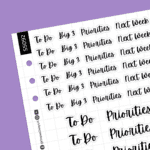 To Do Big 3 Priorities Next Week
To Do Big 3 Priorities Next Week
To Do Big 3 Priorities Next Week
To Do Big 3 Priorities Next Week
To Do Big 3 Priorities Next Week
To Do Big 3 Priorities
To Do Priorities
To Do Priorities